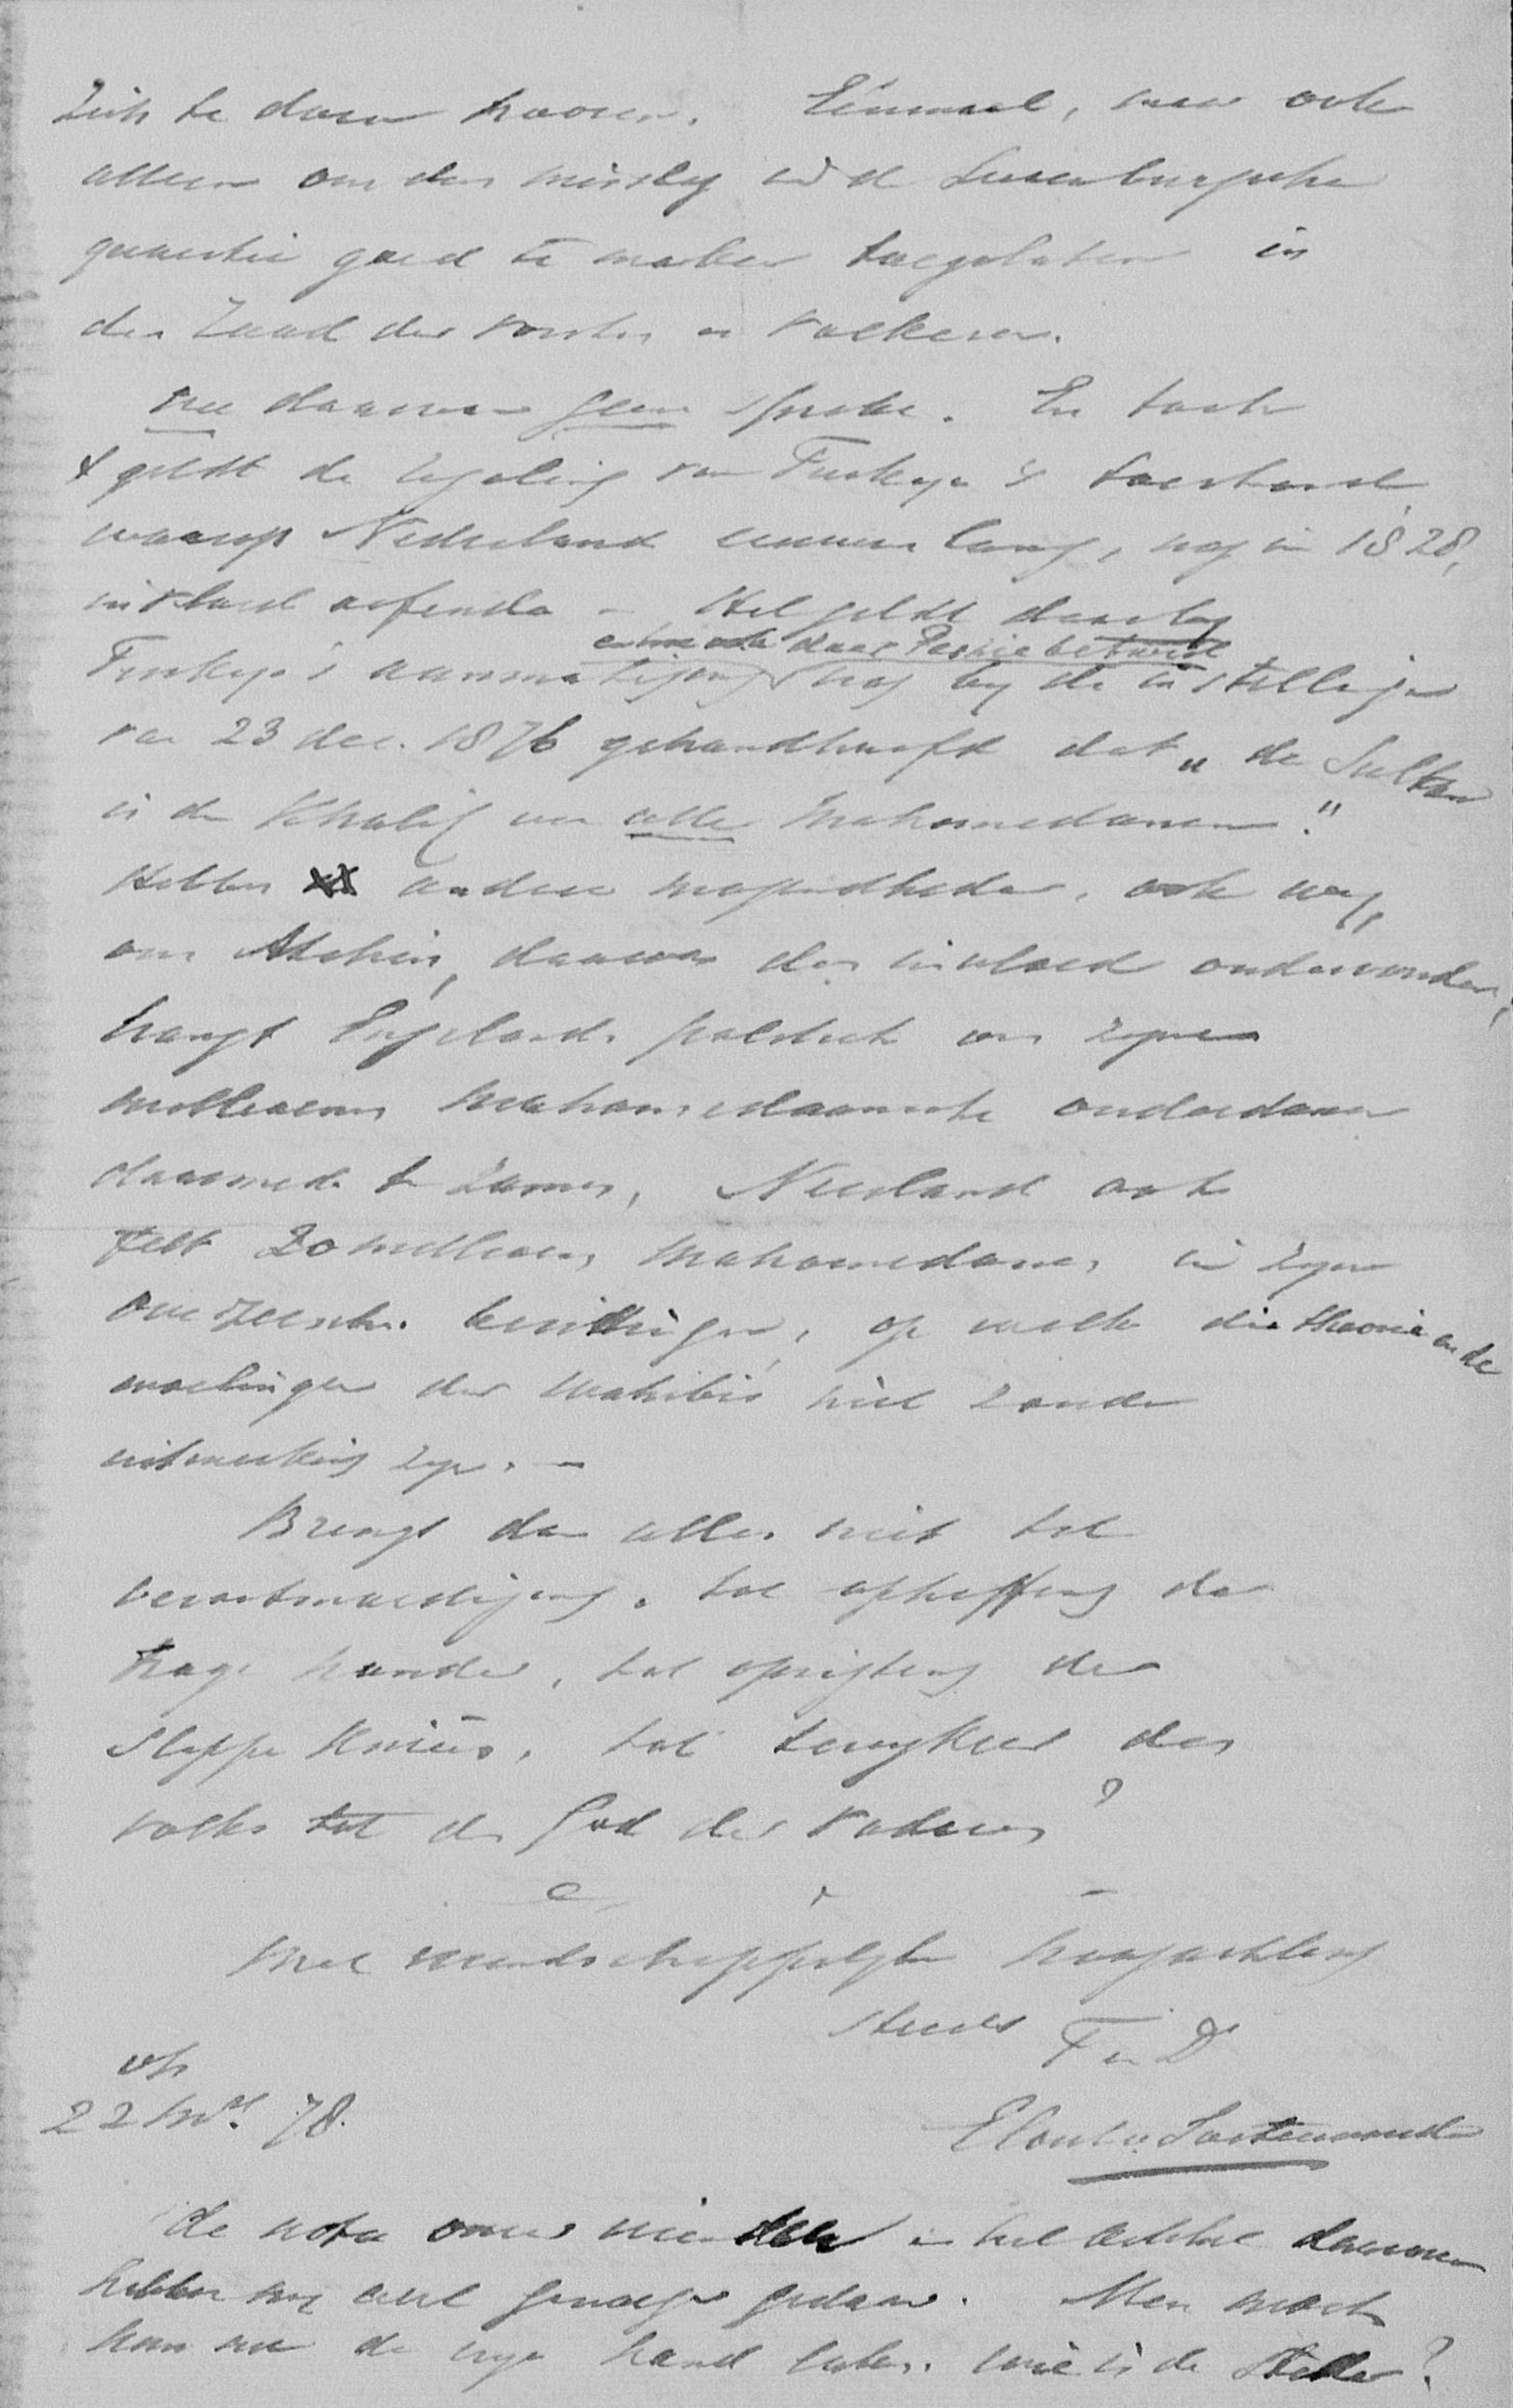 zich te doen hooren. Eénmaal, maar ook
alleen om den misslag in de Luxenburgsche
quaestie goed te maken toegelaten in
den Raad der vorsten en volkeren.
nu daarvan geen sprake. En toch
't geldt de regeling van Turkye's toestand,
waarop Nederland eeuwen lang, nog in 1828,
invloed oefende – Het geldt daarby
en ook daar Perzie betwist
Turkye's aanmatiging nog by de instellingen
van 23 dec. 1876 gehandhaafd dat „de Sultan
is de Khalif van alle Mahomedanen."
Hebben andere mogendheden, ook wy,
om Atchin, daarvan den invloed ondervonden,
hangt Engelands politiek om zyne
millioenen Mahomedaansche onderdanen
daarmede te zamen, Neerland ook
telt 20 millioen Mahomedanen in zyne
overzeesche bezittingen, op welke die theorie en de
woelingen der Wahibis niet zonder
uitwerking zyn. –
Brengt dan alles niet tot
verootmoediging, tot opheffing der
trage handen, tot oprigting der
slappe knieën, tot terugkeer des
volks tot den God der vaderen?
Met vriendschappelyke hoogachting
steeds
T en D
Elout v. Soeterwoude
22 Mrt 78.
de nota onzer vrienden in het
hebben my veel genoegen gedaan. Men mach
hem nu de vrye hand laten. wie is de Steller?